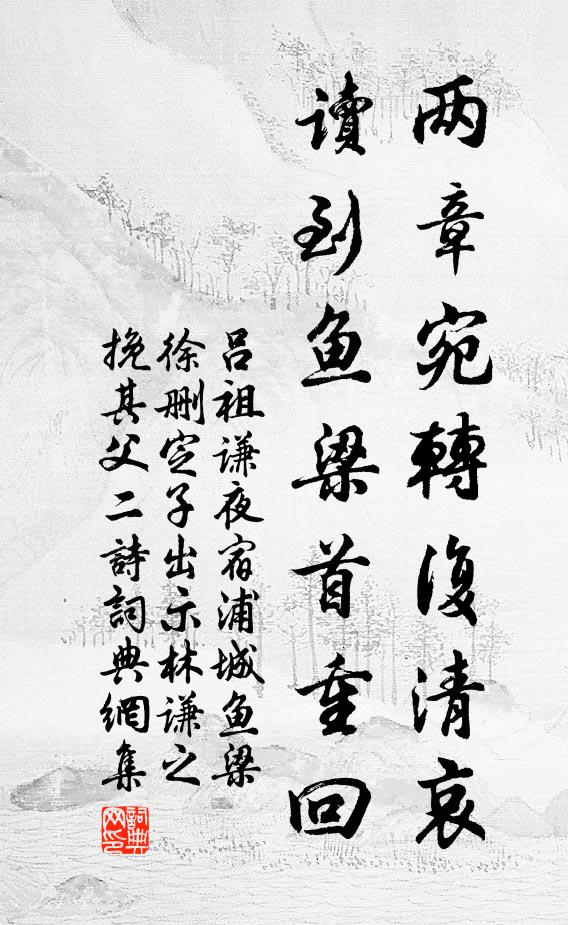 两章宛轉復清哀
读到鱼梁首重回
吕祖谦夜宿浦城鱼梁
徐删定子出示林谦之
挽其父二詩詞典網集
詞典
网印